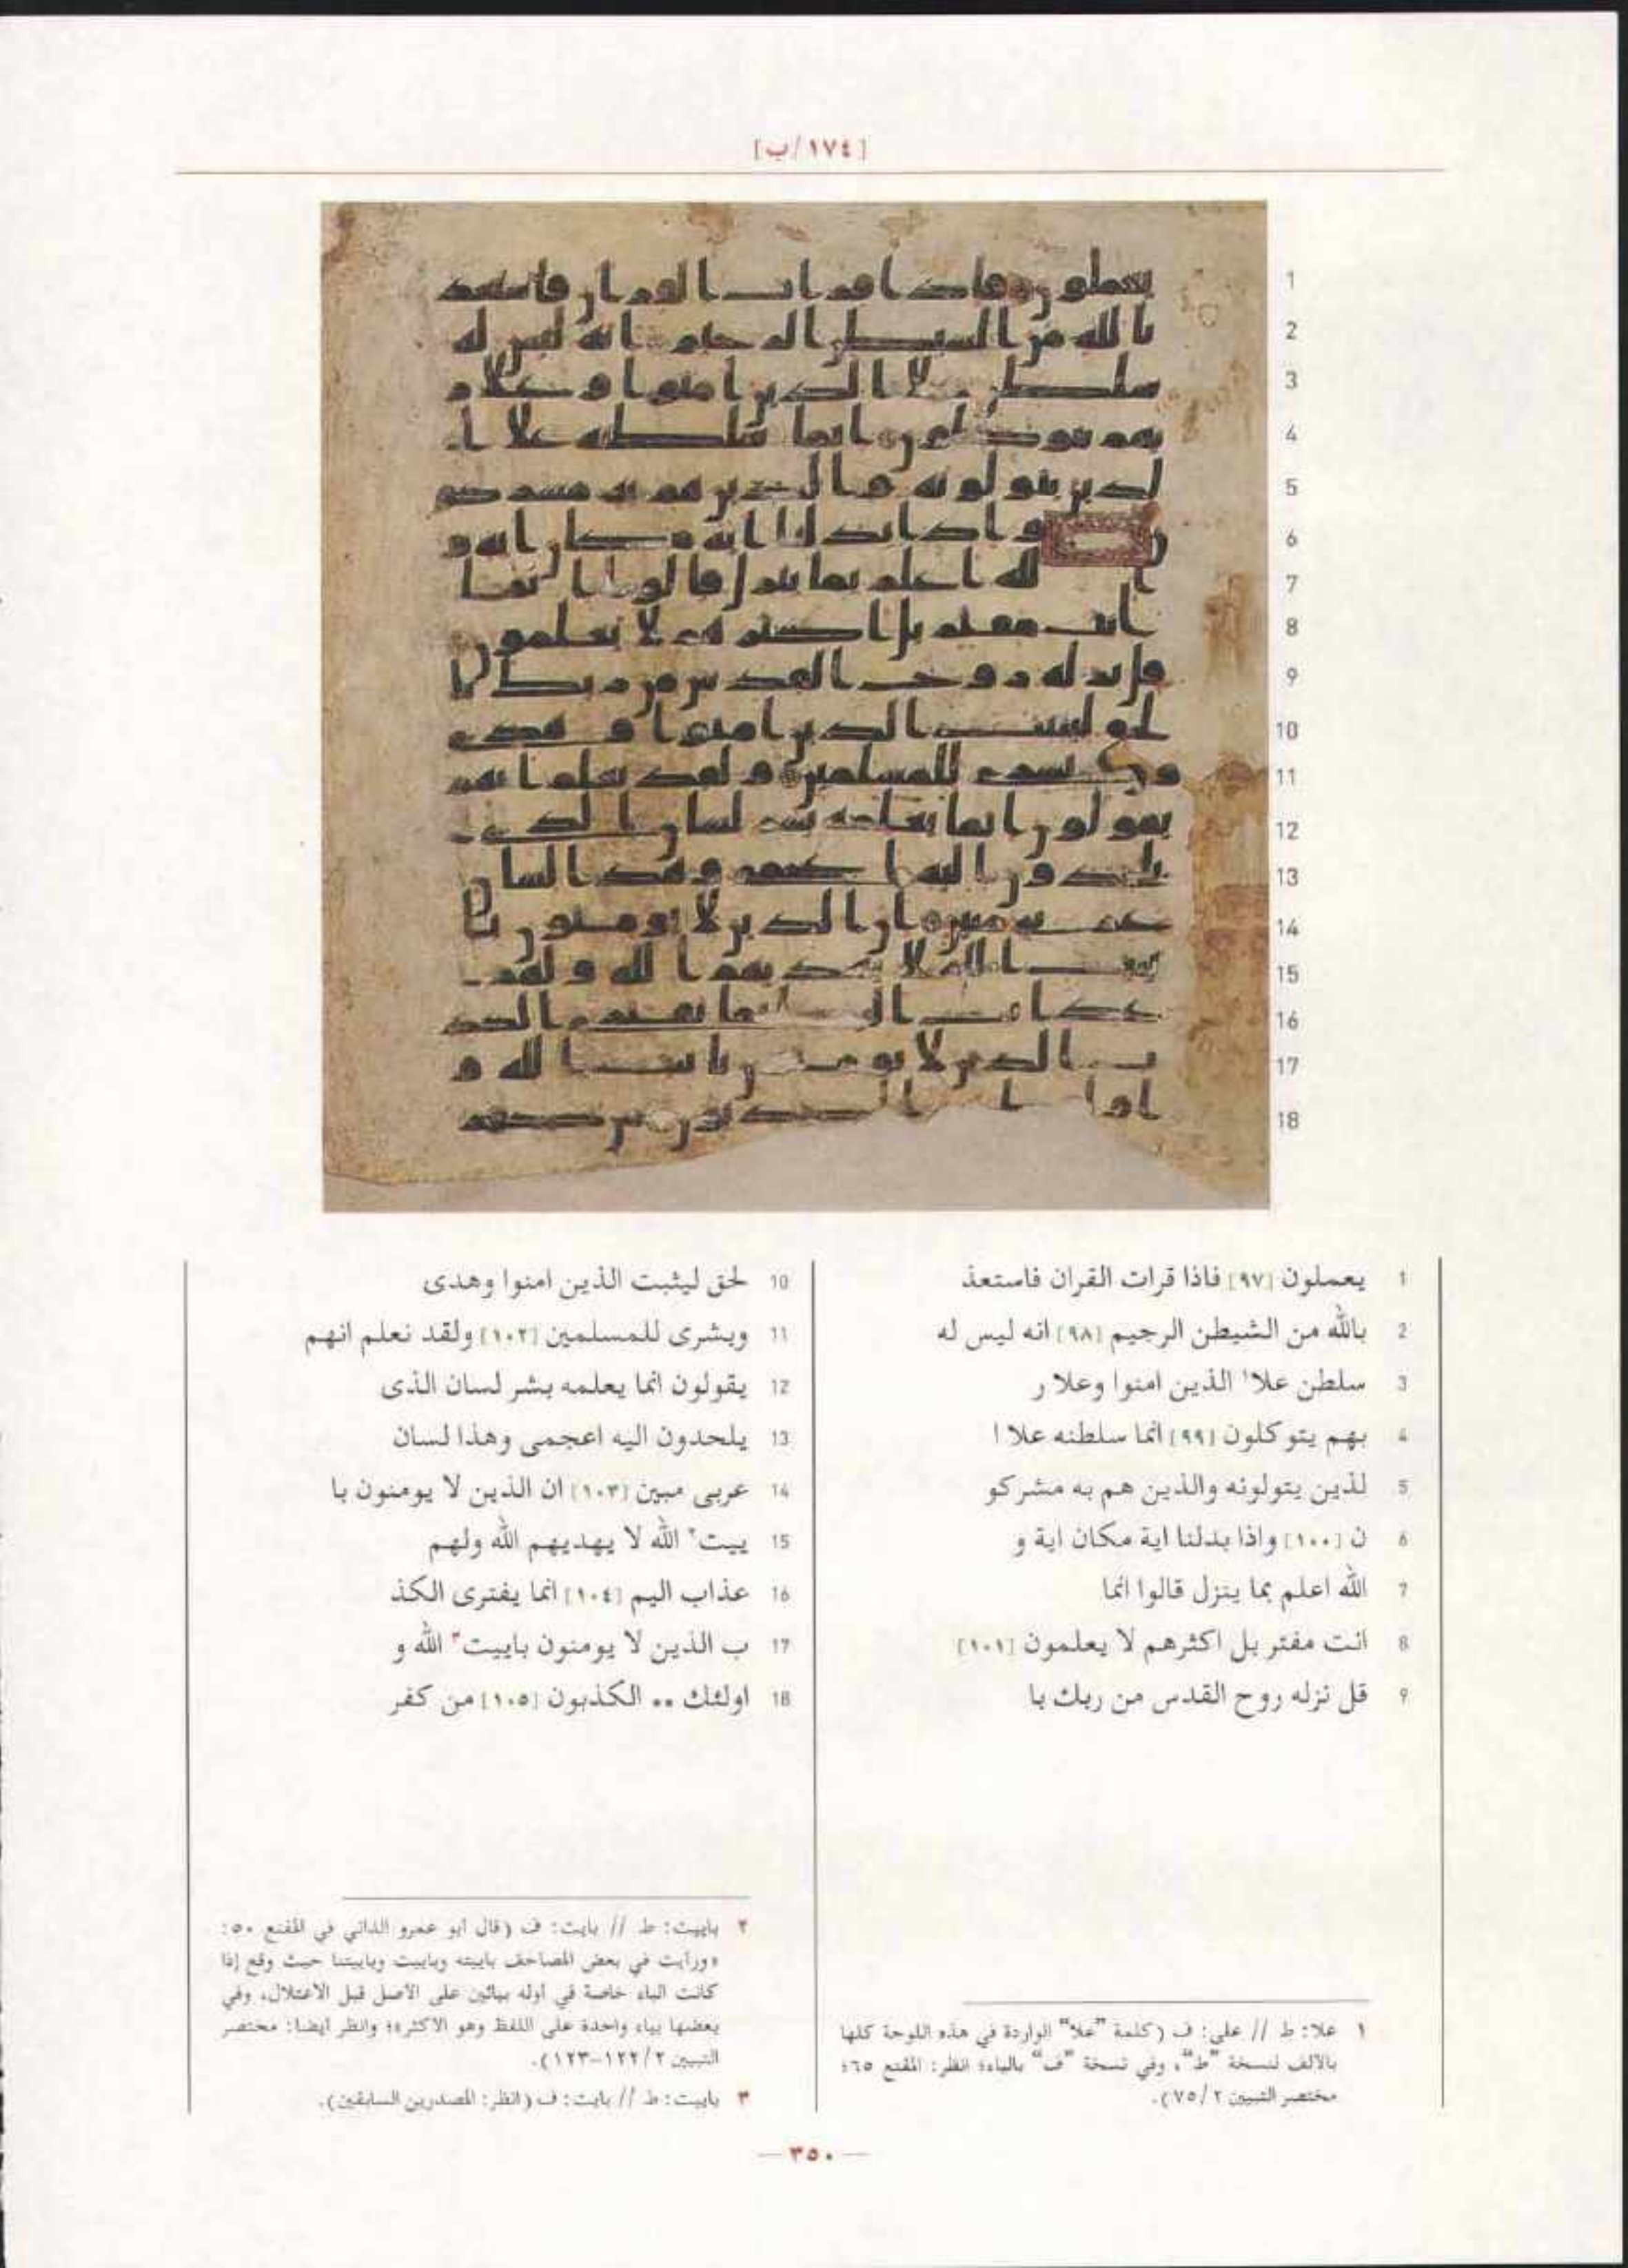 [١٧٤/ب]
1 يعملون [٩٧] فاذا قرات القران فاستعذ
2 بالله من الشيطن الرجيم [٩٨] انه ليس له
3 سلطن علا١ الذين امنوا وعلا ر
4 بهم يتوكلون [٩٩] انما سلطنه علا ا
5 لذين يتولونه والذين هم به مشركو
6 ن [١٠٠] واذا بدلنا اية مكان اية و
7 الله اعلم بما ينزل قالوا انما
8 انت مفتر بل اكثرهم لا يعلمون [١٠١]
9 قل نزله روح القدس من ربك با
10 لحق ليثبت الذين امنوا وهدى
11 وبشرى للمسلمين [١٠٢] ولقد نعلم انهم
12 يقولون انما يعلمه بشر لسان الذى
13 يلحدون اليه اعجمى وهذا لسان
14 عربى مبين [١٠٣] ان الذين لا يومنون با
15 ييت٢ الله لا يهديهم الله ولهم
16 عذاب اليم [١٠٤] انما يفترى الكذ
17 ب الذين لا يومنون باييت٣ الله و
18 اولئك .. الكذبون [١٠٥] من كفر
١ علا: ط // على: ف (كلمة "علا" الواردة في هذه اللوحة كلها
بالألف لنسخة "ط"، وفي نسخة "ف" بالياء؛ انظر: المقنع ٦٥؛
مختصر التبيين ٧٥/٢).
٢ باييت: ط // بايت: ف (قال أبو عمرو الداني في المقنع ٥٠:
«ورأيت في بعض المصاحف باييته وباييت وباييتنا حيث وقع إذا
كانت الباء خاصة في أوله بيائين على الأصل قبل الاعتلال، وفي
بعضها بياء واحدة على اللفظ وهو الأكثر»؛ وانظر أيضا: مختصر
التبيين ١٢٢/٢-١٢٣).
٣ باييت: ط // بايت: ف (انظر: المصدرين السابقين).
— ٣٥٠ —